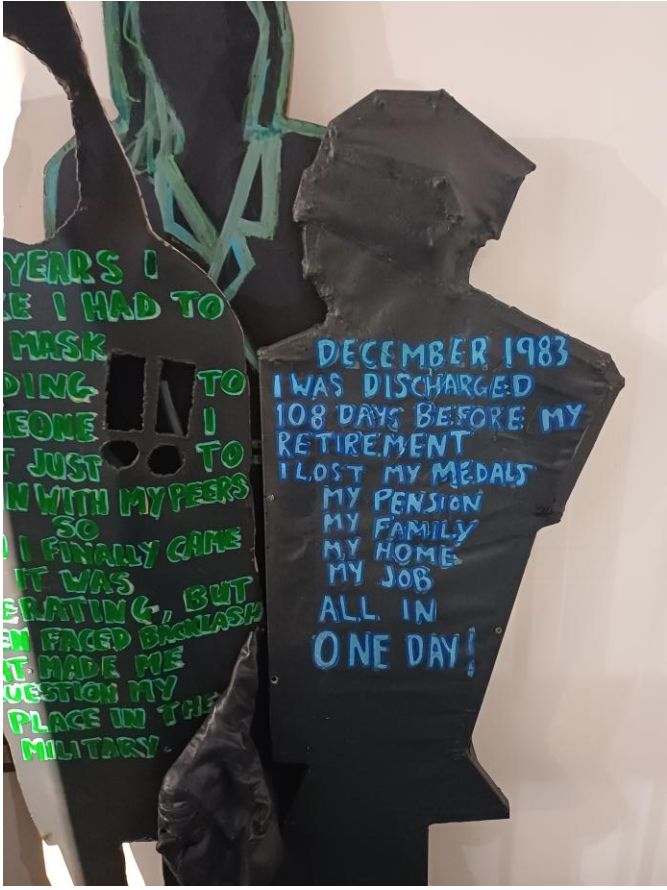 YEARS I
I HAD TO
MASK
TO
I
JUST TO
WITH MY PEERS
SO
I FINALLY CAME
IT WAS
BUT
FACED BACKLASH
MADE ME
MY
PLACE IN THE
MILITARY.
DECEMBER 1983
I WAS DISCHARGED
108 DAYS BEFORE MY
RETIREMENT
I LOST MY MEDALS
MY PENSION
MY FAMILY
MY HOME
MY JOB
ALL IN
ONE DAY!